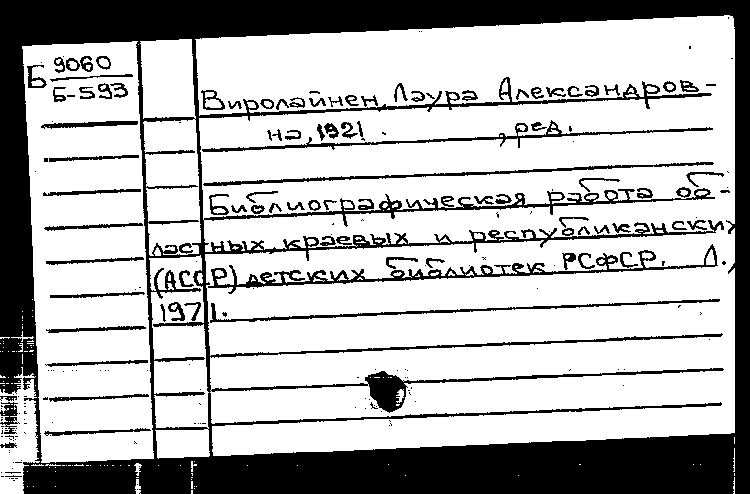 Б 9060
Б-593
Виролайнен, Лаура Александров-
на, 1921 . , ред.
Библиографическая работа об-
ластных, краевых и республиканских
(АССР) детских библиотек РСФСР. Л.,
1971.